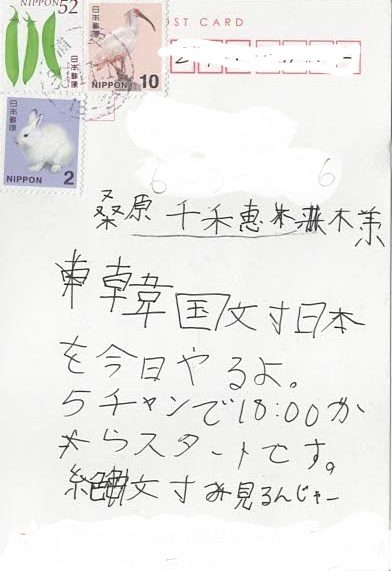 NIPPON 52
日本郵便
NIPPON 10
日本郵便
日本郵便
NIPPON 2
POST CARD
桑原 千禾恵 様
韓国文寸日本
を今日やるよ。
5チャンで18:00か
らスタートです。
絶文寸み見るんじゃー